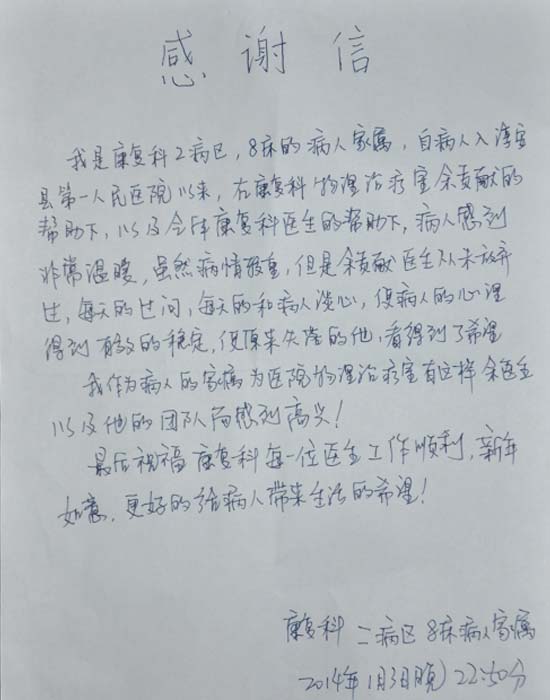 感谢信
我是康复科2病区，8床的病人家属，自病人入淳安
县第一人民医院以来，在康复科物理治疗室余贡献的
帮助下，以及全体康复科医生的帮助下，病人感到
非常温暖，虽然病情严重，但是余贡献医生从未放弃
过，每天的过问，每天的和病人谈心，使病人的心理
得到有效的稳定，使原来失落的他，看得到了希望
我作为病人的家属为医院物理治疗室有这样余医生
以及他的团队而感到高兴！
最后祝福康复科每一位医生工作顺利，新年
如意，更好的给病人带来生活的希望！
康复科 二病区 8床病人家属
2014年1月3日晚 22:50分